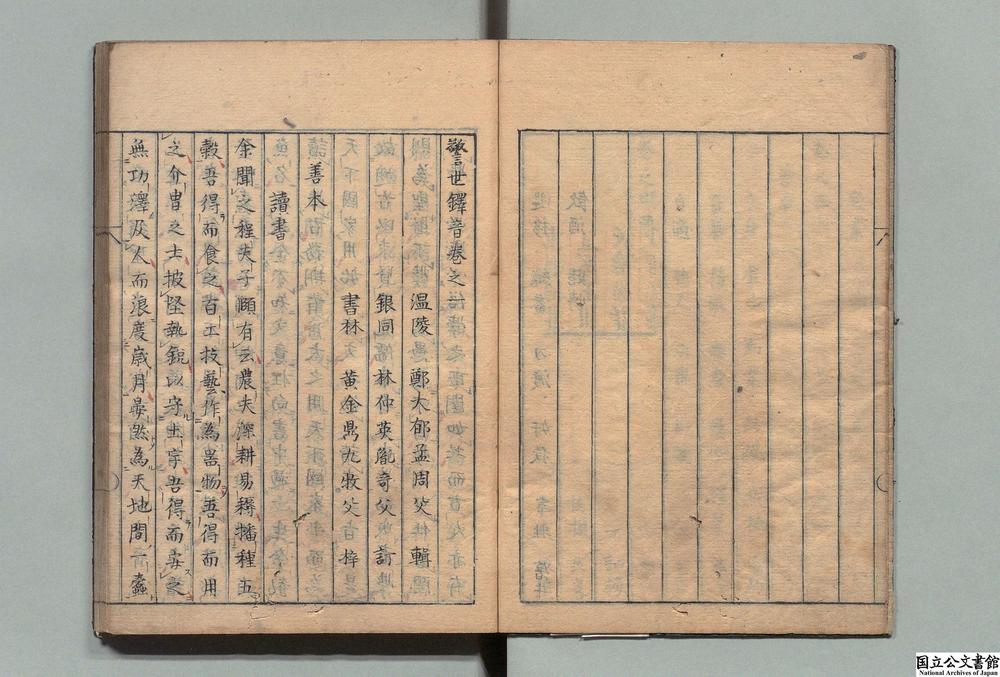 警世鐸音卷之一
溫陵 鄭大郁孟周父 輯
銀同 林仲英胤奇父 訂
書林 黃金鼎九牧父 梓
善本
讀書
余聞之程夫子頤有云農夫深耕易耨播種五
穀吾得而食之百工技藝作為器物吾得而用
之介冑之士披堅執銳以守土宇吾得而安之
無功澤及人而浪度歲月晏然為天地間一蠹
国立公文書館
National Archives of Japan